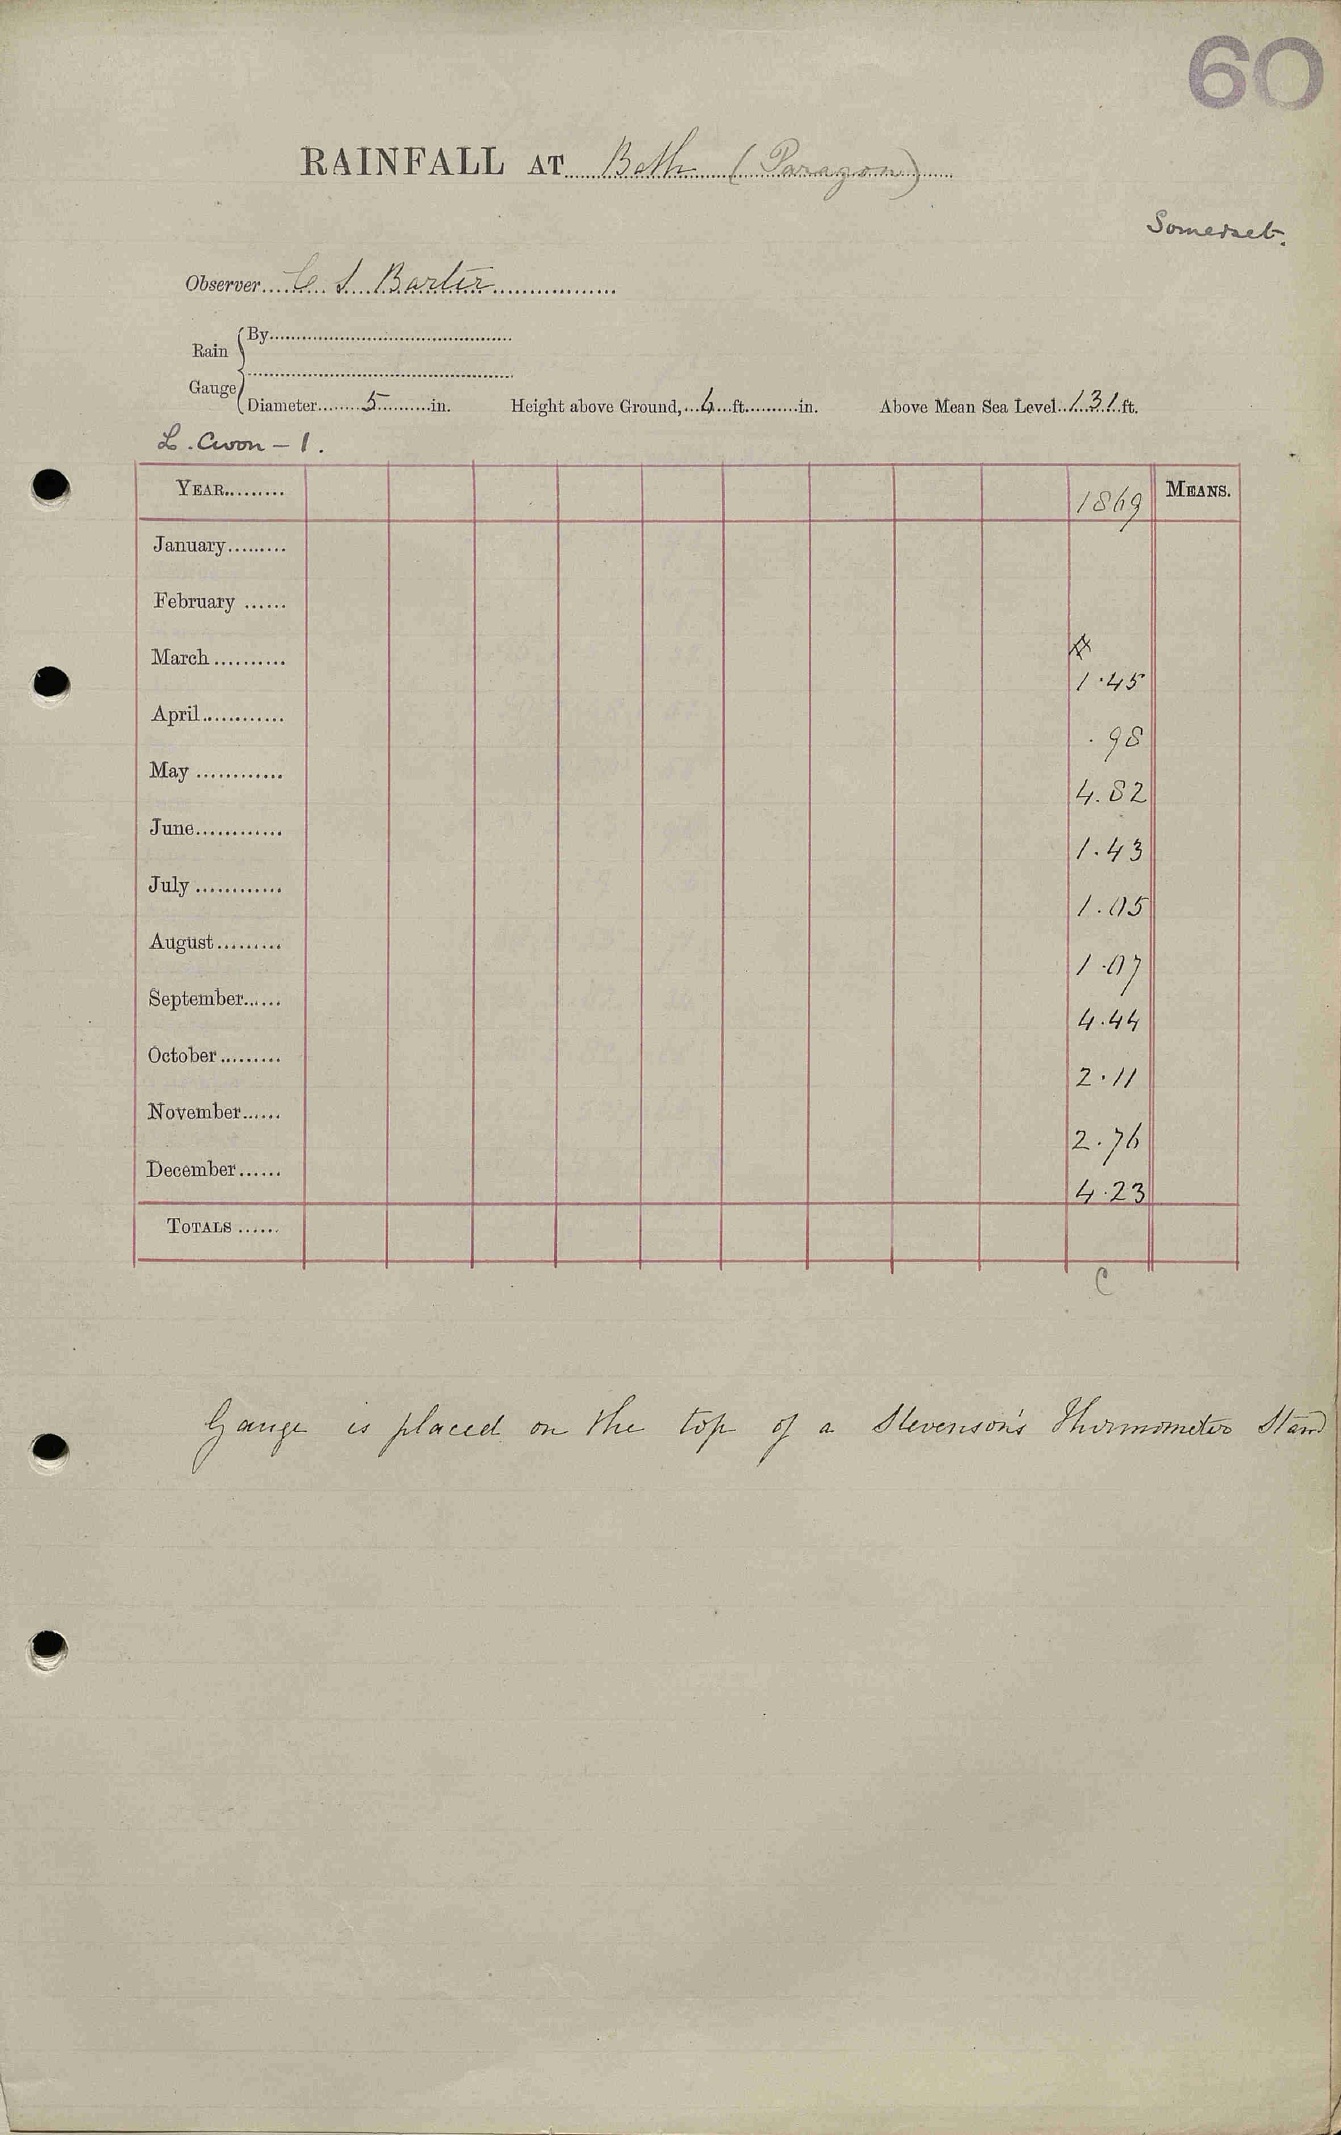 60
RAINFALL AT Bath (Paragon)
Somerset.
Observer C S Barter
Rain Gauge
By
Diameter 5 in. Height above Ground, 4 ft. in. Above Mean Sea Level 131 ft.
L. Avon – 1.
YEAR 1869 MEANS.
January
February
March 1.45
April .98
May 4.82
June 1.43
July 1.05
August 1.07
September 4.44
October 2.11
November 2.76
December 4.23
TOTALS
C
Gauge is placed on the top of a Stevenson's Thermometer Stand